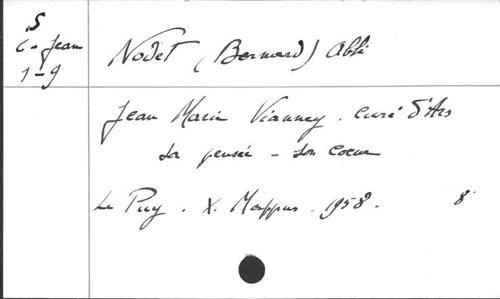 S
C-Jean
1-9
Nodet (Bernard) Abbé
Jean Marie Vianney. curé d'Ars
sa pensée - son coeur
Le Puy. X. Mappus. 1958. 8°